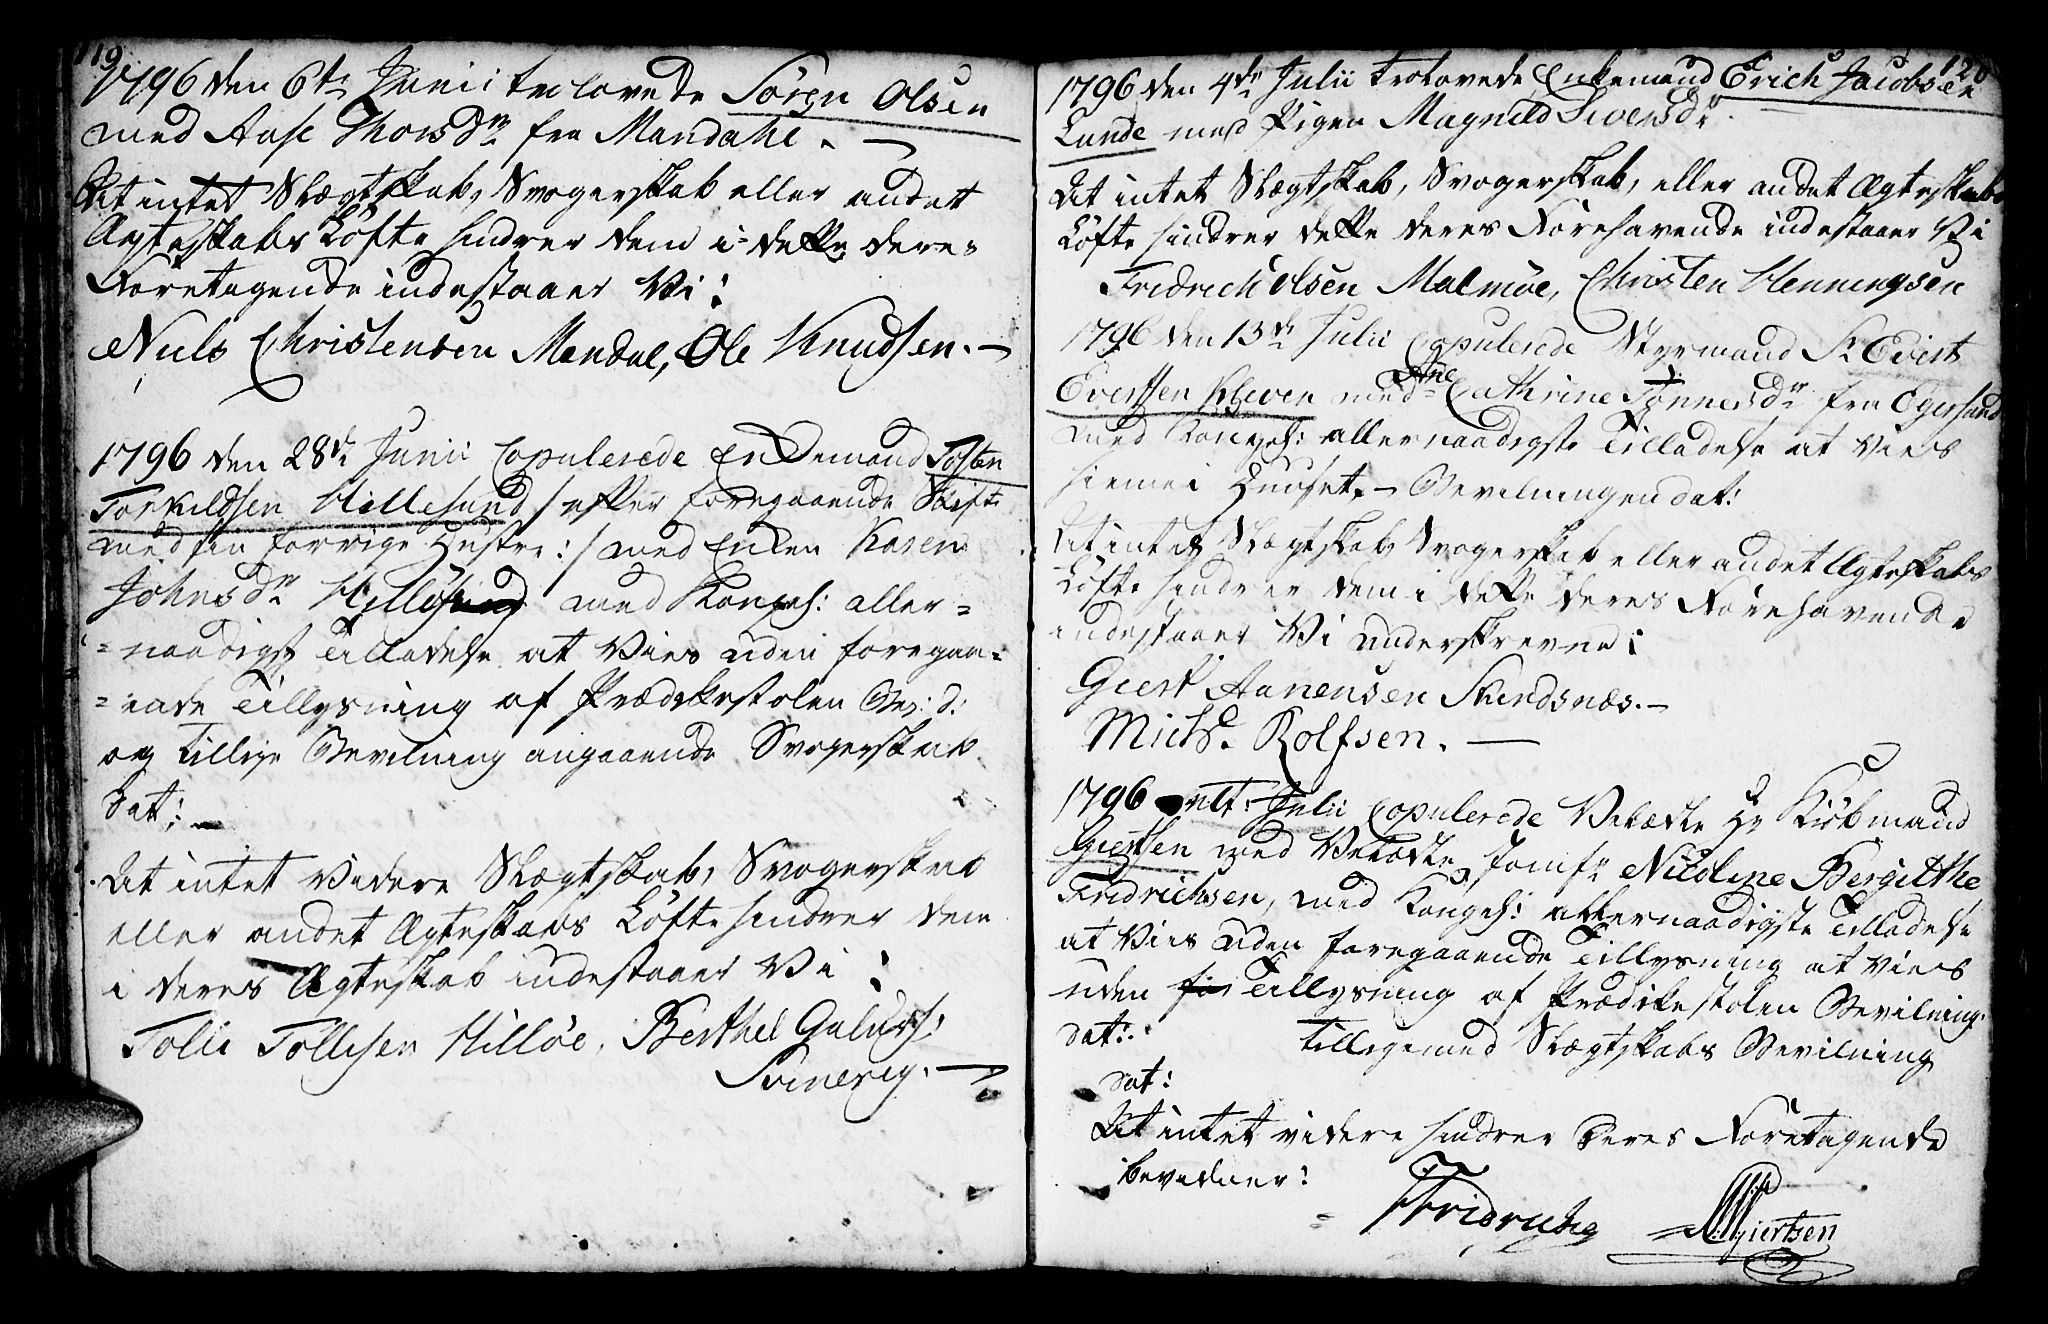 119
1796 den 6te Junii trolovede Sören Olsen
med Aase Thorsdr fra Mandahl. —
At intet Slægtskab, Svogerskab eller andet
Ægteskabs Löfte hindrer dem i dette deres
Foretagende indestaaer Vi:
Niels Christensen Mandal, Ole Knudsen. —
1796 den 28de Junii Copulerede Enkemand Tosten
Torkildsen Hillesund /: efter foregaaende Skifte
med sin forrige Hustru :/ med Enken Karen
Johnsdr Hillösund med Kongel: aller=
=naadigst Tilladelse at Vies uden foregaa=
=ende Tillysning af Prædikestolen Bev: d:
og tillige Bevilning angaaende Svogerskab
dat: —
At intet videre Slægtskab, Svogerskab
eller andet Ægteskabs Löfte hindrer dem
i deres Ægteskab indestaaer Vi:
Tolli Tollisen Hillöe, Berthel Gulurs:
Svinevig. —
120
1796 den 4de Julii trolovede Enkemand Erich Jacobsen
Lunde med Pigen Magnild Siversdr
At intet Slægtskab, Svogerskab, eller andet Ægteskabs
Löfte hindrer dette deres Forehavende indestaaer Vi
Fridrich Olsen Malmöe, Christen Henningsen
1796 den 13de Julii Copulerede Styrmand Sr Evert
Evertsen Kleven med Ane Cathrine Tönnesdr fra Egersund
med Kongel: allernaadigste Tilladelse at Vies
hieme i Huuset. — Bevilningen dat:
At intet Slægtskab, Svogerskab eller andet Ægteskabs
Löfte hindrer dem i dette deres Forehavende
indestaaer Vi underskrevne:
Giert Aanensen Skindsnæs. —
Michl. Rolfsen. —
1796 ult: Julii Copulerede Velædle Hr Kiöbmand
Giertsen med Velædle Jomfr Nicoline Bergitthe
Fridrichsen, med Kongel: allernaadigste Tilladelse
at Vies uden foregaaende Tillysning at vies
uden for Tillysning af Prædikestolen Bevilning
dat: tillige med Slægtskabs Bevilning
dat:
At intet videre hindrer deres Foretagende
bevidner:
Fridrichs Giertsen